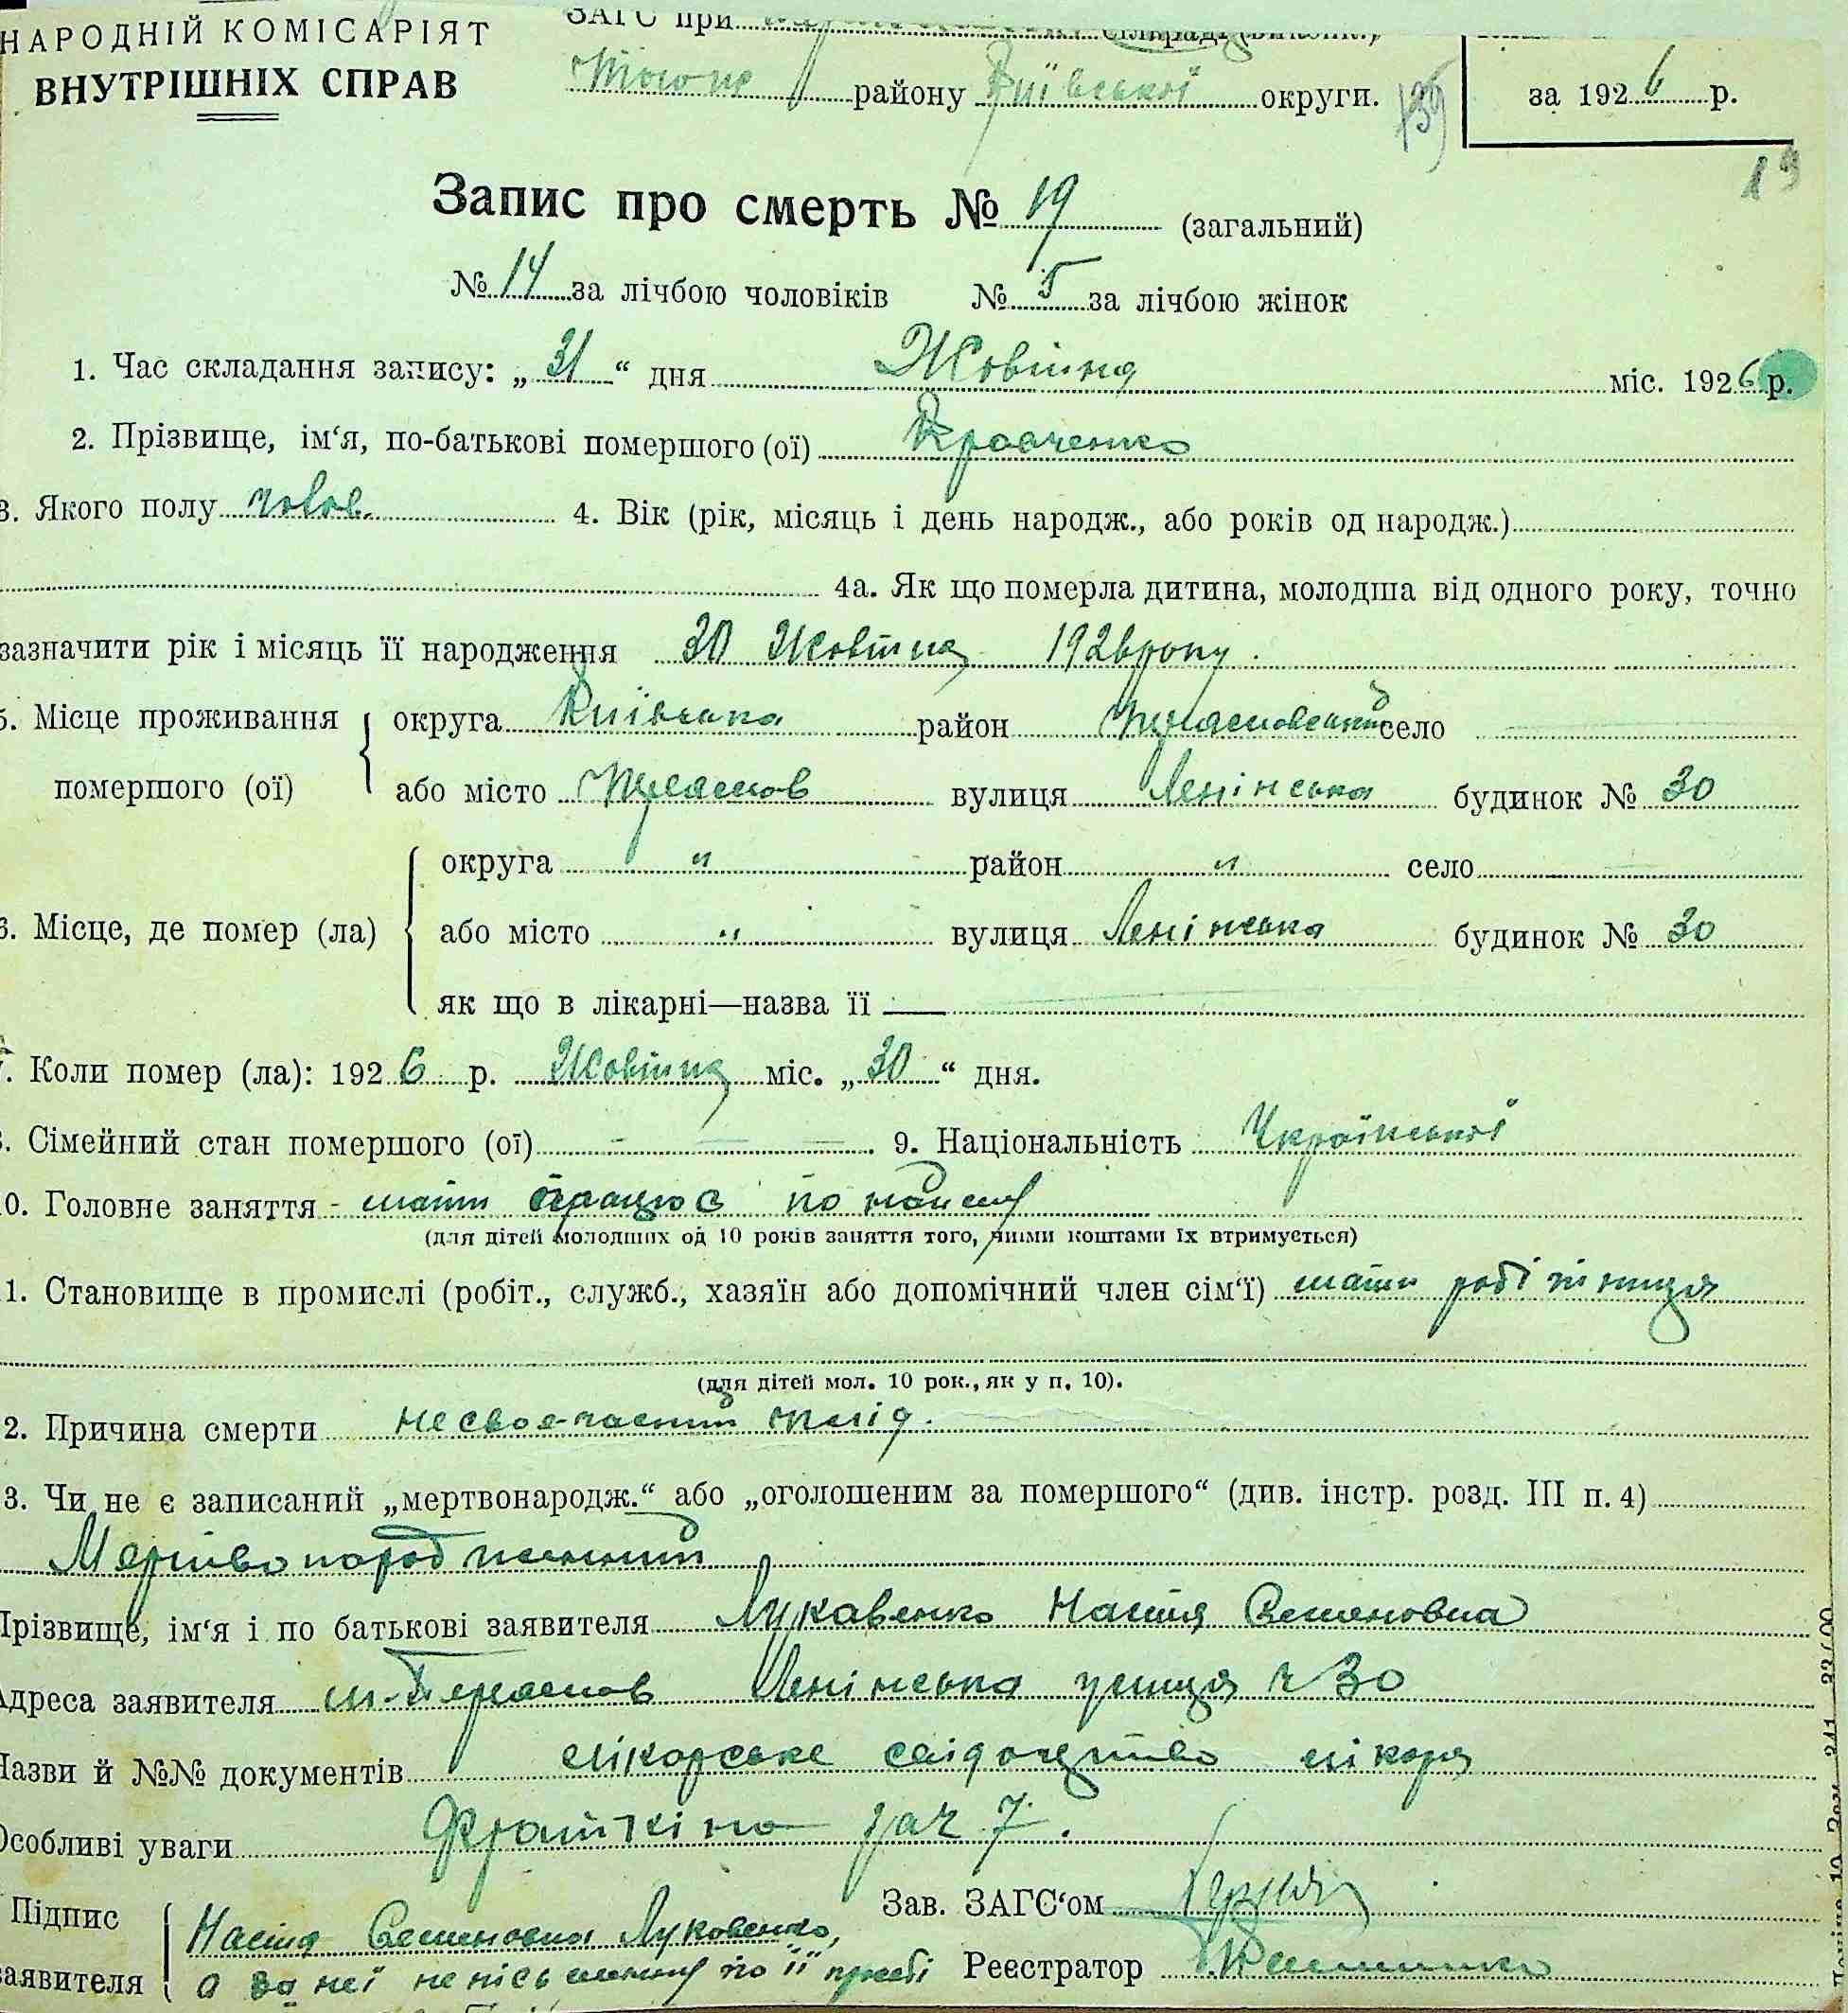 НАРОДНІЙ КОМІСАРІЯТ
ВНУТРІШНІХ СПРАВ
ЗАГС при
району Київської округи.
139
за 1926 р.
19
Запис про смерть № 19 (загальний)
№ 14 за лічбою чоловіків № 5 за лічбою жінок
1. Час складання запису: „31“ дня Жовтня міс. 1926 р.
2. Прізвище, ім‘я, по-батькові помершого (ої) Кравченко
3. Якого полу чолов. 4. Вік (рік, місяць і день народж., або років од народж.)
4а. Як що померла дитина, молодша від одного року, точно
зазначити рік і місяць її народження 30 Жовтня 1926 року.
5. Місце проживання помершого (ої) округа Київська район село
або місто вулиця Ленінська будинок № 30
6. Місце, де помер (ла) округа " район " село
або місто " вулиця Ленінська будинок № 30
як що в лікарні—назва її —
7. Коли помер (ла): 1926 р. Жовтня міс. „30“ дня.
8. Сімейний стан помершого (ої) 9. Національність Української
10. Головне заняття - мати працює по найму
(для дітей молодших од 10 років заняття того, чиїми коштами їх втримується)
11. Становище в промислі (робіт., служб., хазяїн або допомічний член сім‘ї) мати робітниця
(для дітей мол. 10 рок., як у п. 10).
12. Причина смерти несвоечасний плід.
13. Чи не є записаний „мертвонародж.“ або „оголошеним за помершого“ (див. інстр. розд. III п. 4)
Мертвонародженний
Прізвище, ім‘я і по батькові заявителя Лукавенко Настя Семеновна
Адреса заявителя Ленінська улиця ч 30
Назви й №№ документів лікарське свідоцтво лікаря
Особливі уваги Фрайткіна за ч 7.
Підпис заявителя Настя Семеновна Луковенко, Зав. ЗАГС‘ом
а за неї неписьменну по її просьбі Реєстратор